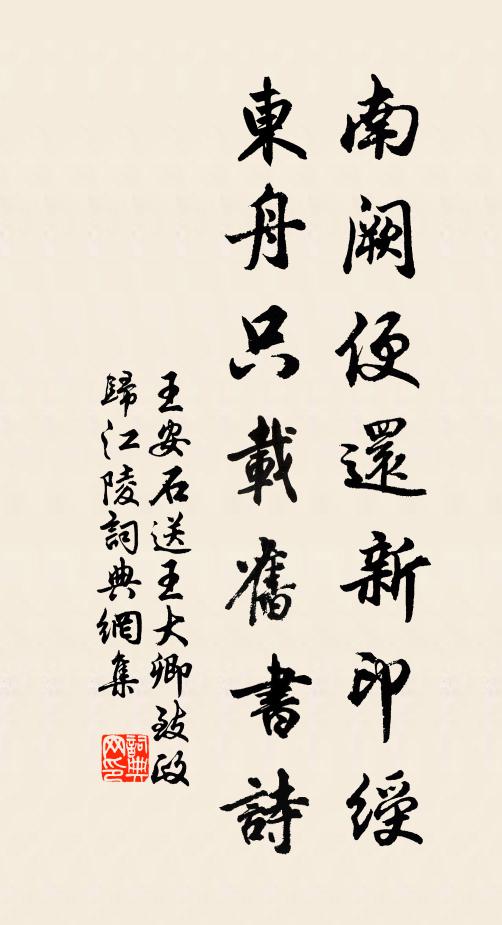 南阙便還新印綬
東舟只載舊書詩
王安石送王大卿致政
歸江陵詞典網集
詞典
网印